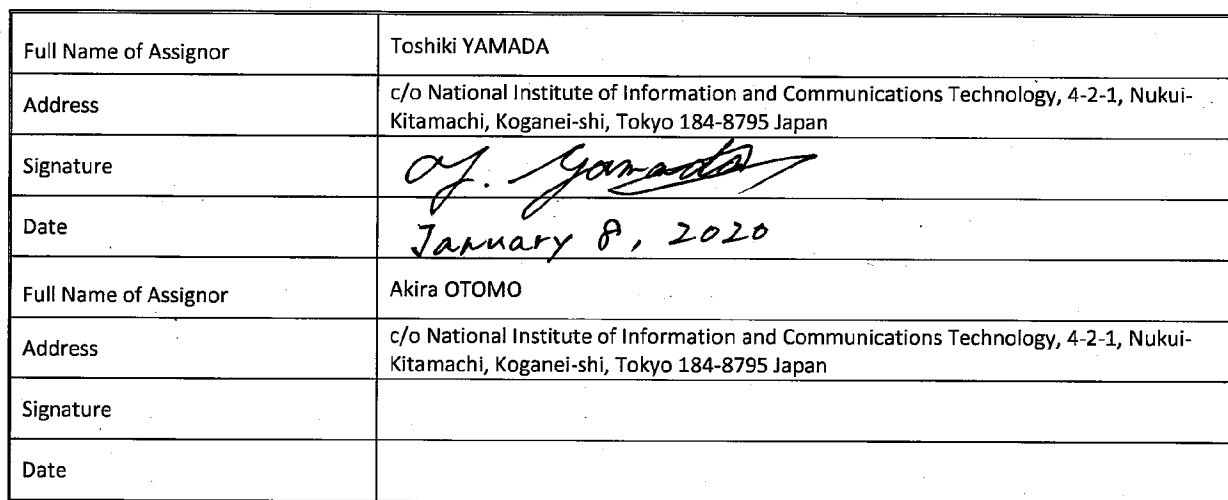 Full Name of Assignor
Toshiki YAMADA
Address
c/o National Institute of Information and Communications Technology, 4-2-1, Nukui-
Kitamachi, Koganei-shi, Tokyo 184-8795 Japan
Signature
Yamada
Date
January 8, 2020
Full Name of Assignor
Akira OTOMO
Address
c/o National Institute of Information and Communications Technology, 4-2-1, Nukui-
Kitamachi, Koganei-shi, Tokyo 184-8795 Japan
Signature
Date